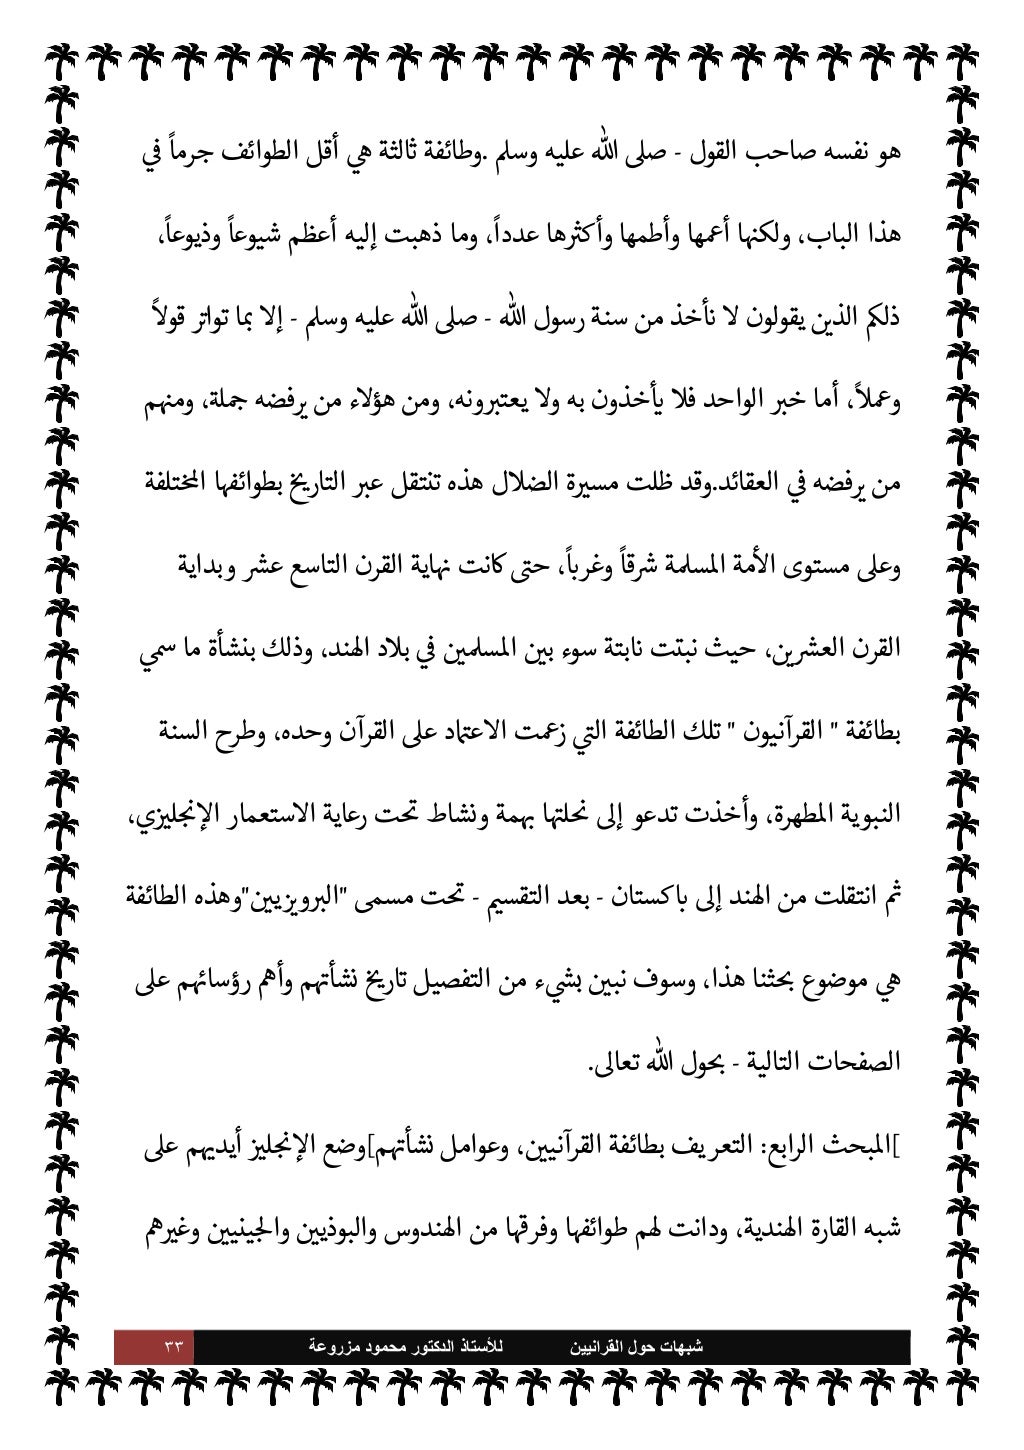 هو نفسه صاحب القول - صلى الله عليه وسلم .وطائفة ثالثة هي أقل الطوائف جرماً في
هذا الباب، ولكنها أعمها وأطمها وأكثرها عدداً، وما ذهبت إليه أعظم شيوعاً وذيوعاً،
ذلكم الذين يقولون لا نأخذ من سنة رسول الله - صلى الله عليه وسلم - إلا بما تواتر قولاً
وعملاً، أما خبر الواحد فلا يأخذون به ولا يعتبرونه، ومن هؤلاء من يرفضه جملة، ومنهم
من يرفضه في العقائد.وقد ظلت مسيرة الضلال هذه تنتقل عبر التاريخ بطوائفها المختلفة
وعلى مستوى الأمة المسلمة شرقاً وغرباً، حتى كانت نهاية القرن التاسع عشر وبداية
القرن العشرين، حيث نبتت نابتة سوء بين المسلمين في بلاد الهند، وذلك بنشأة ما سمي
بطائفة " القرآنيون " تلك الطائفة التي زعمت الاعتماد على القرآن وحده، وطرح السنة
النبوية المطهرة، وأخذت تدعو إلى نحلتها بهمة ونشاط تحت رعاية الاستعمار الإنجليزي،
ثم انتقلت من الهند إلى باكستان - بعد التقسيم - تحت مسمى "البرويزيين"وهذه الطائفة
هي موضوع بحثنا هذا، وسوف نبين بشيء من التفصيل تاريخ نشأتهم وأهم رؤسائهم على
الصفحات التالية - بحول الله تعالى.
]المبحث الرابع: التعريف بطائفة القرآنيين، وعوامل نشأتهم]وضع الإنجليز أيديهم على
شبه القارة الهندية، ودانت لهم طوائفها وفرقها من الهندوس والبوذيين والجينيين وغيرهم
شبهات حول القرانيين للأستاذ الدكتور محمود مزروعة ٣٣